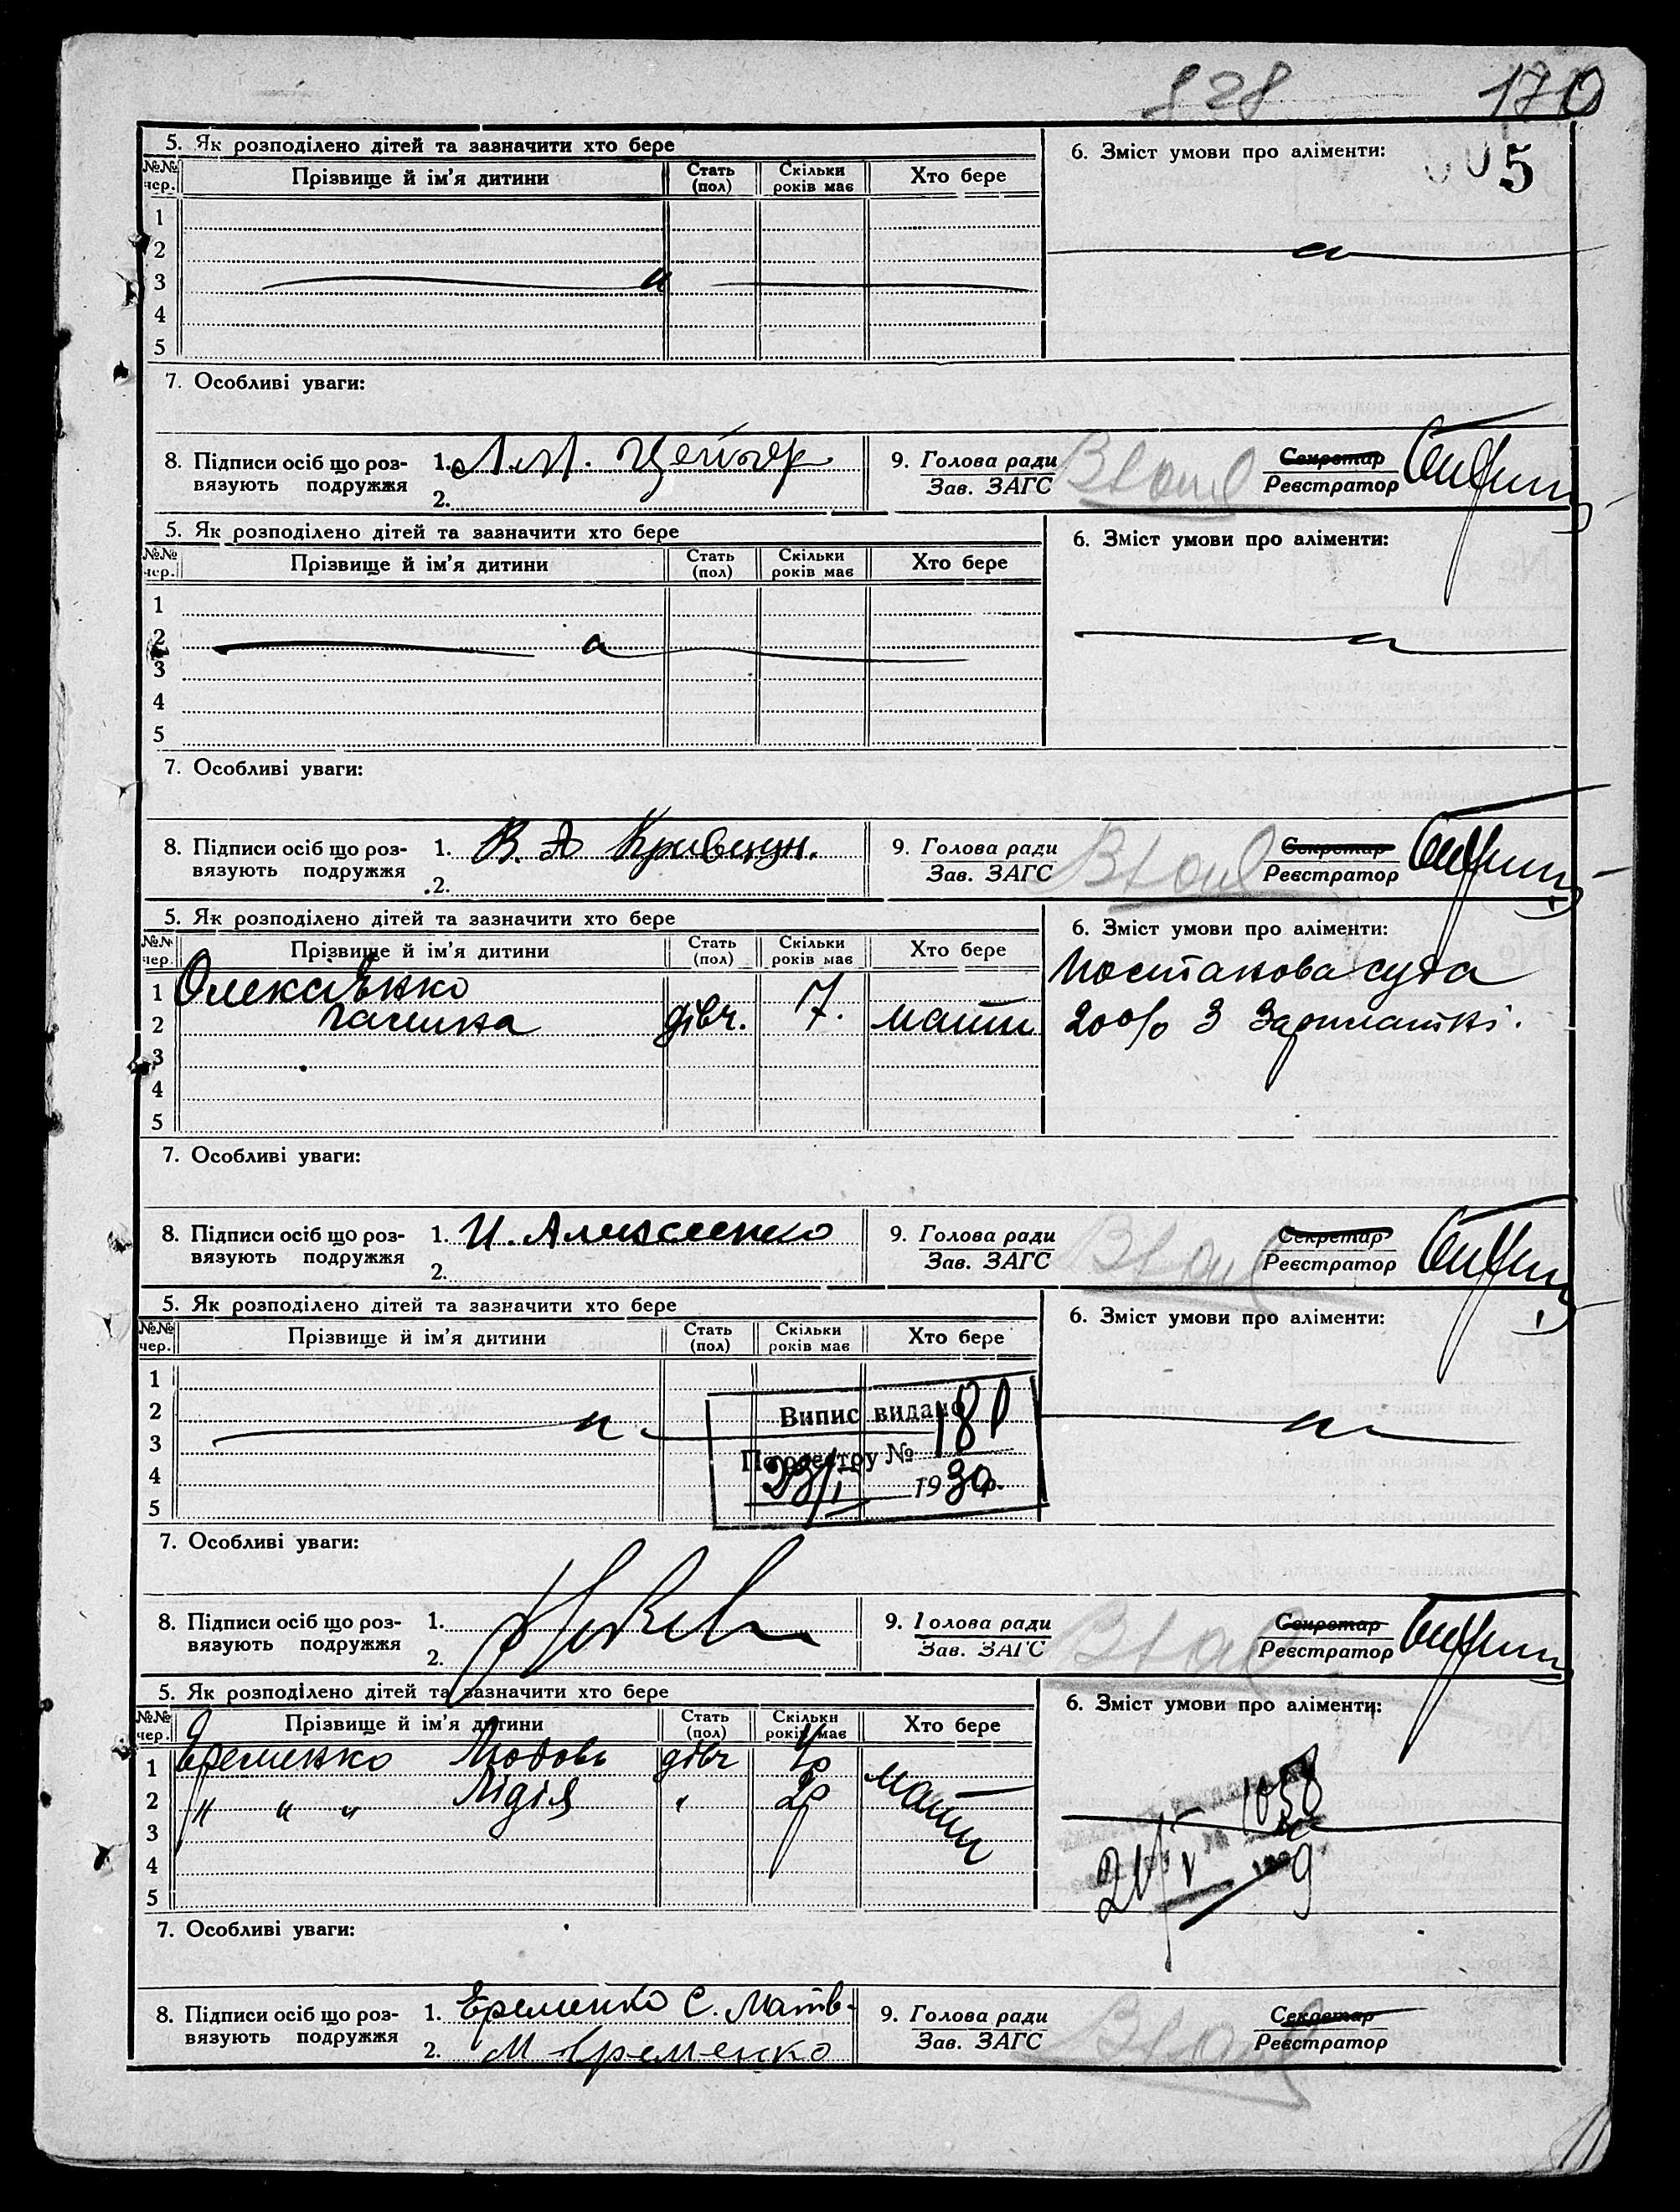 828 170
5
5. Як розподілено дітей та зазначити хто бере
№№ чер. Прізвище й ім'я дитини Стать (пол) Скільки років має Хто бере
6. Зміст умови про аліменти:
1
2
3
4
5
7. Особливі уваги:
8. Підписи осіб що роз-
вязують подружжя
1.
2.
9. Голова ради
Зав. ЗАГС
Секретар
Реєстратор
5. Як розподілено дітей та зазначити хто бере
№№ чер. Прізвище й ім'я дитини Стать (пол) Скільки років має Хто бере
6. Зміст умови про аліменти:
1
2
3
4
5
7. Особливі уваги:
8. Підписи осіб що роз-
вязують подружжя
1. В. А Кривцун.
2.
9. Голова ради
Зав. ЗАГС
Секретар
Реєстратор
5. Як розподілено дітей та зазначити хто бере
№№ чер. Прізвище й ім'я дитини Стать (пол) Скільки років має Хто бере
6. Зміст умови про аліменти:
1 Олексієнко
2 дівч. 7. мати
Постанова суда
20% З Зарплатні.
3
4
5
7. Особливі уваги:
8. Підписи осіб що роз-
вязують подружжя
1. И. Алексеенко
2.
9. Голова ради
Зав. ЗАГС
Секретар
Реєстратор
5. Як розподілено дітей та зазначити хто бере
№№ чер. Прізвище й ім'я дитини Стать (пол) Скільки років має Хто бере
6. Зміст умови про аліменти:
1
2
3
4
5
Випис видано
По реестру № 181
23/I 1930р.
7. Особливі уваги:
8. Підписи осіб що роз-
вязують подружжя
1.
2.
9. Голова ради
Зав. ЗАГС
Секретар
Реєстратор
5. Як розподілено дітей та зазначити хто бере
№№ чер. Прізвище й ім'я дитини Стать (пол) Скільки років має Хто бере
6. Зміст умови про аліменти:
1 Еременко Любовь дівч 4р
2 " " " Лідія " 2р мати
3
4
5
1058
7. Особливі уваги:
8. Підписи осіб що роз-
вязують подружжя
1. Еременко С. Матв.
2. М Еременко
9. Голова ради
Зав. ЗАГС
Секретар
Реєстратор